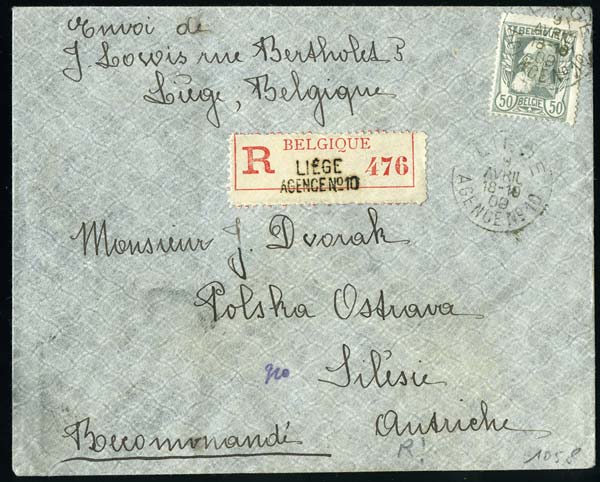 Envoi de
J Lowis rue Bertholet 5
Liège, Belgique
BELGIQUE
50 BELGIË 50
R BELGIQUE 476
LIÉGE
AGENCE Nº 10
AVRIL
18-19
09
AGENCE Nº 10
Monsieur J. Dvorak
Polska Ostrava
Silésie
Autriche
Recommandé
R!
1058